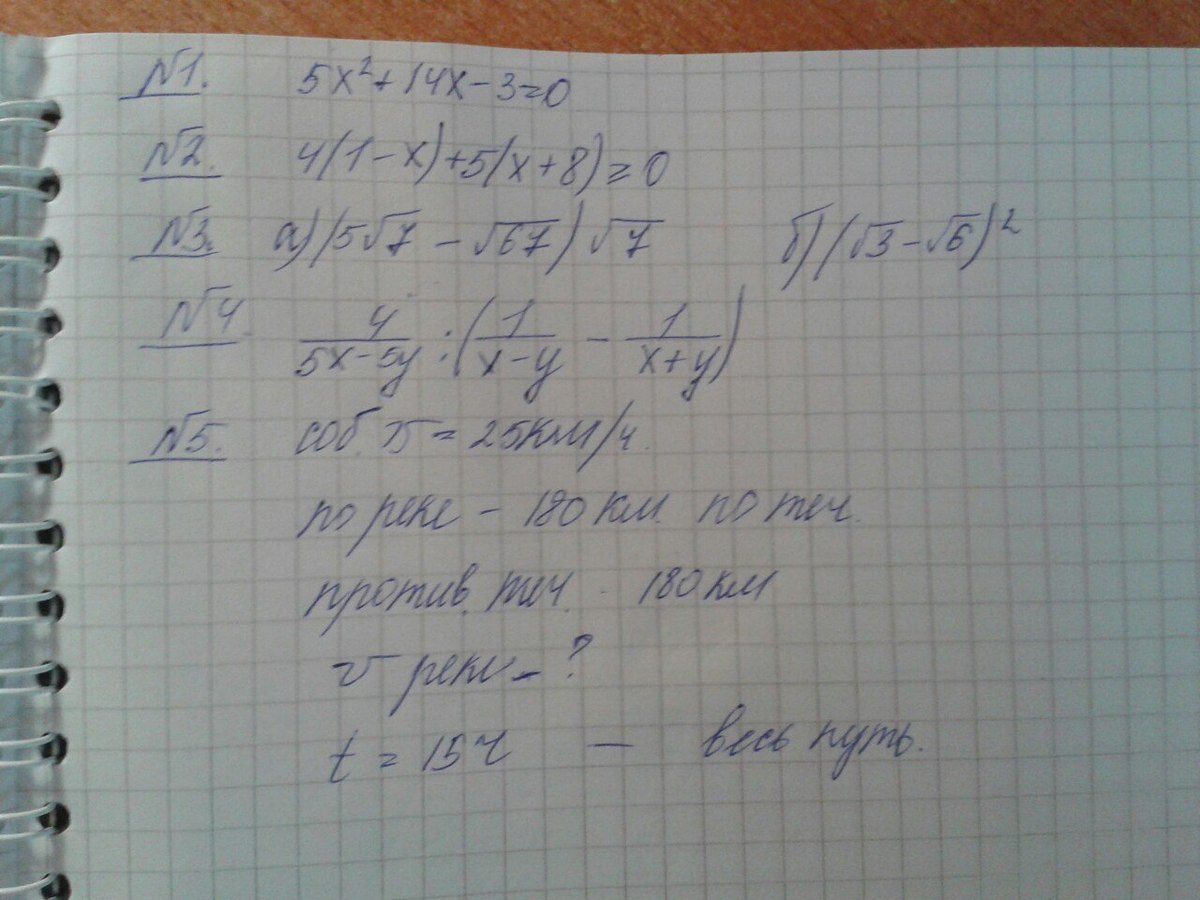 №1. 5x²+14x-3=0
№2. 4(1-x)+5(x+8)=0
№3. а)(5√7 - √67)√7 б)(√3-√6)²
№4. 4/(5x-5y) : (1/(x-y) - 1/(x+y))
№5. соб. v = 25км/ч.
по реке - 180 км. по теч.
против. теч. - 180 км
v реки - ?
t = 15ч — весь путь.